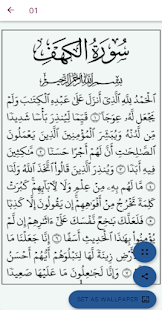 01
سُورَةُ الْكَهْفِ
بِسْمِ اللَّهِ الرَّحْمَٰنِ الرَّحِيمِ
الْحَمْدُ لِلَّهِ الَّذِي أَنزَلَ عَلَىٰ عَبْدِهِ الْكِتَٰبَ وَلَمْ
يَجْعَل لَّهُ عِوَجَا ۜ ١ قَيِّمًا لِّيُنذِرَ بَأْسًا شَدِيدًا
مِّن لَّدُنْهُ وَيُبَشِّرَ الْمُؤْمِنِينَ الَّذِينَ يَعْمَلُونَ
الصَّٰلِحَٰتِ أَنَّ لَهُمْ أَجْرًا حَسَنًا ٢ مَّٰكِثِينَ
فِيهِ أَبَدًا ٣ وَيُنذِرَ الَّذِينَ قَالُوا اتَّخَذَ اللَّهُ وَلَدًا ٤
مَّا لَهُم بِهِ مِنْ عِلْمٍ وَلَا لِآبَائِهِمْ كَبُرَتْ
كَلِمَةً تَخْرُجُ مِنْ أَفْوَٰهِهِمْ إِن يَقُولُونَ إِلَّا كَذِبًا ٥
فَلَعَلَّكَ بَٰخِعٌ نَّفْسَكَ عَلَىٰ ءَاثَٰرِهِمْ إِن لَّمْ
يُؤْمِنُوا بِهَٰذَا الْحَدِيثِ أَسَفًا ٦ إِنَّا جَعَلْنَا مَا
عَلَى الْأَرْضِ زِينَةً لَّهَا لِنَبْلُوَهُمْ أَيُّهُمْ أَحْسَنُ
عَمَلًا ٧ وَإِنَّا لَجَٰعِلُونَ مَا عَلَيْهَا صَعِيدًا
SET AS WALLPAPER